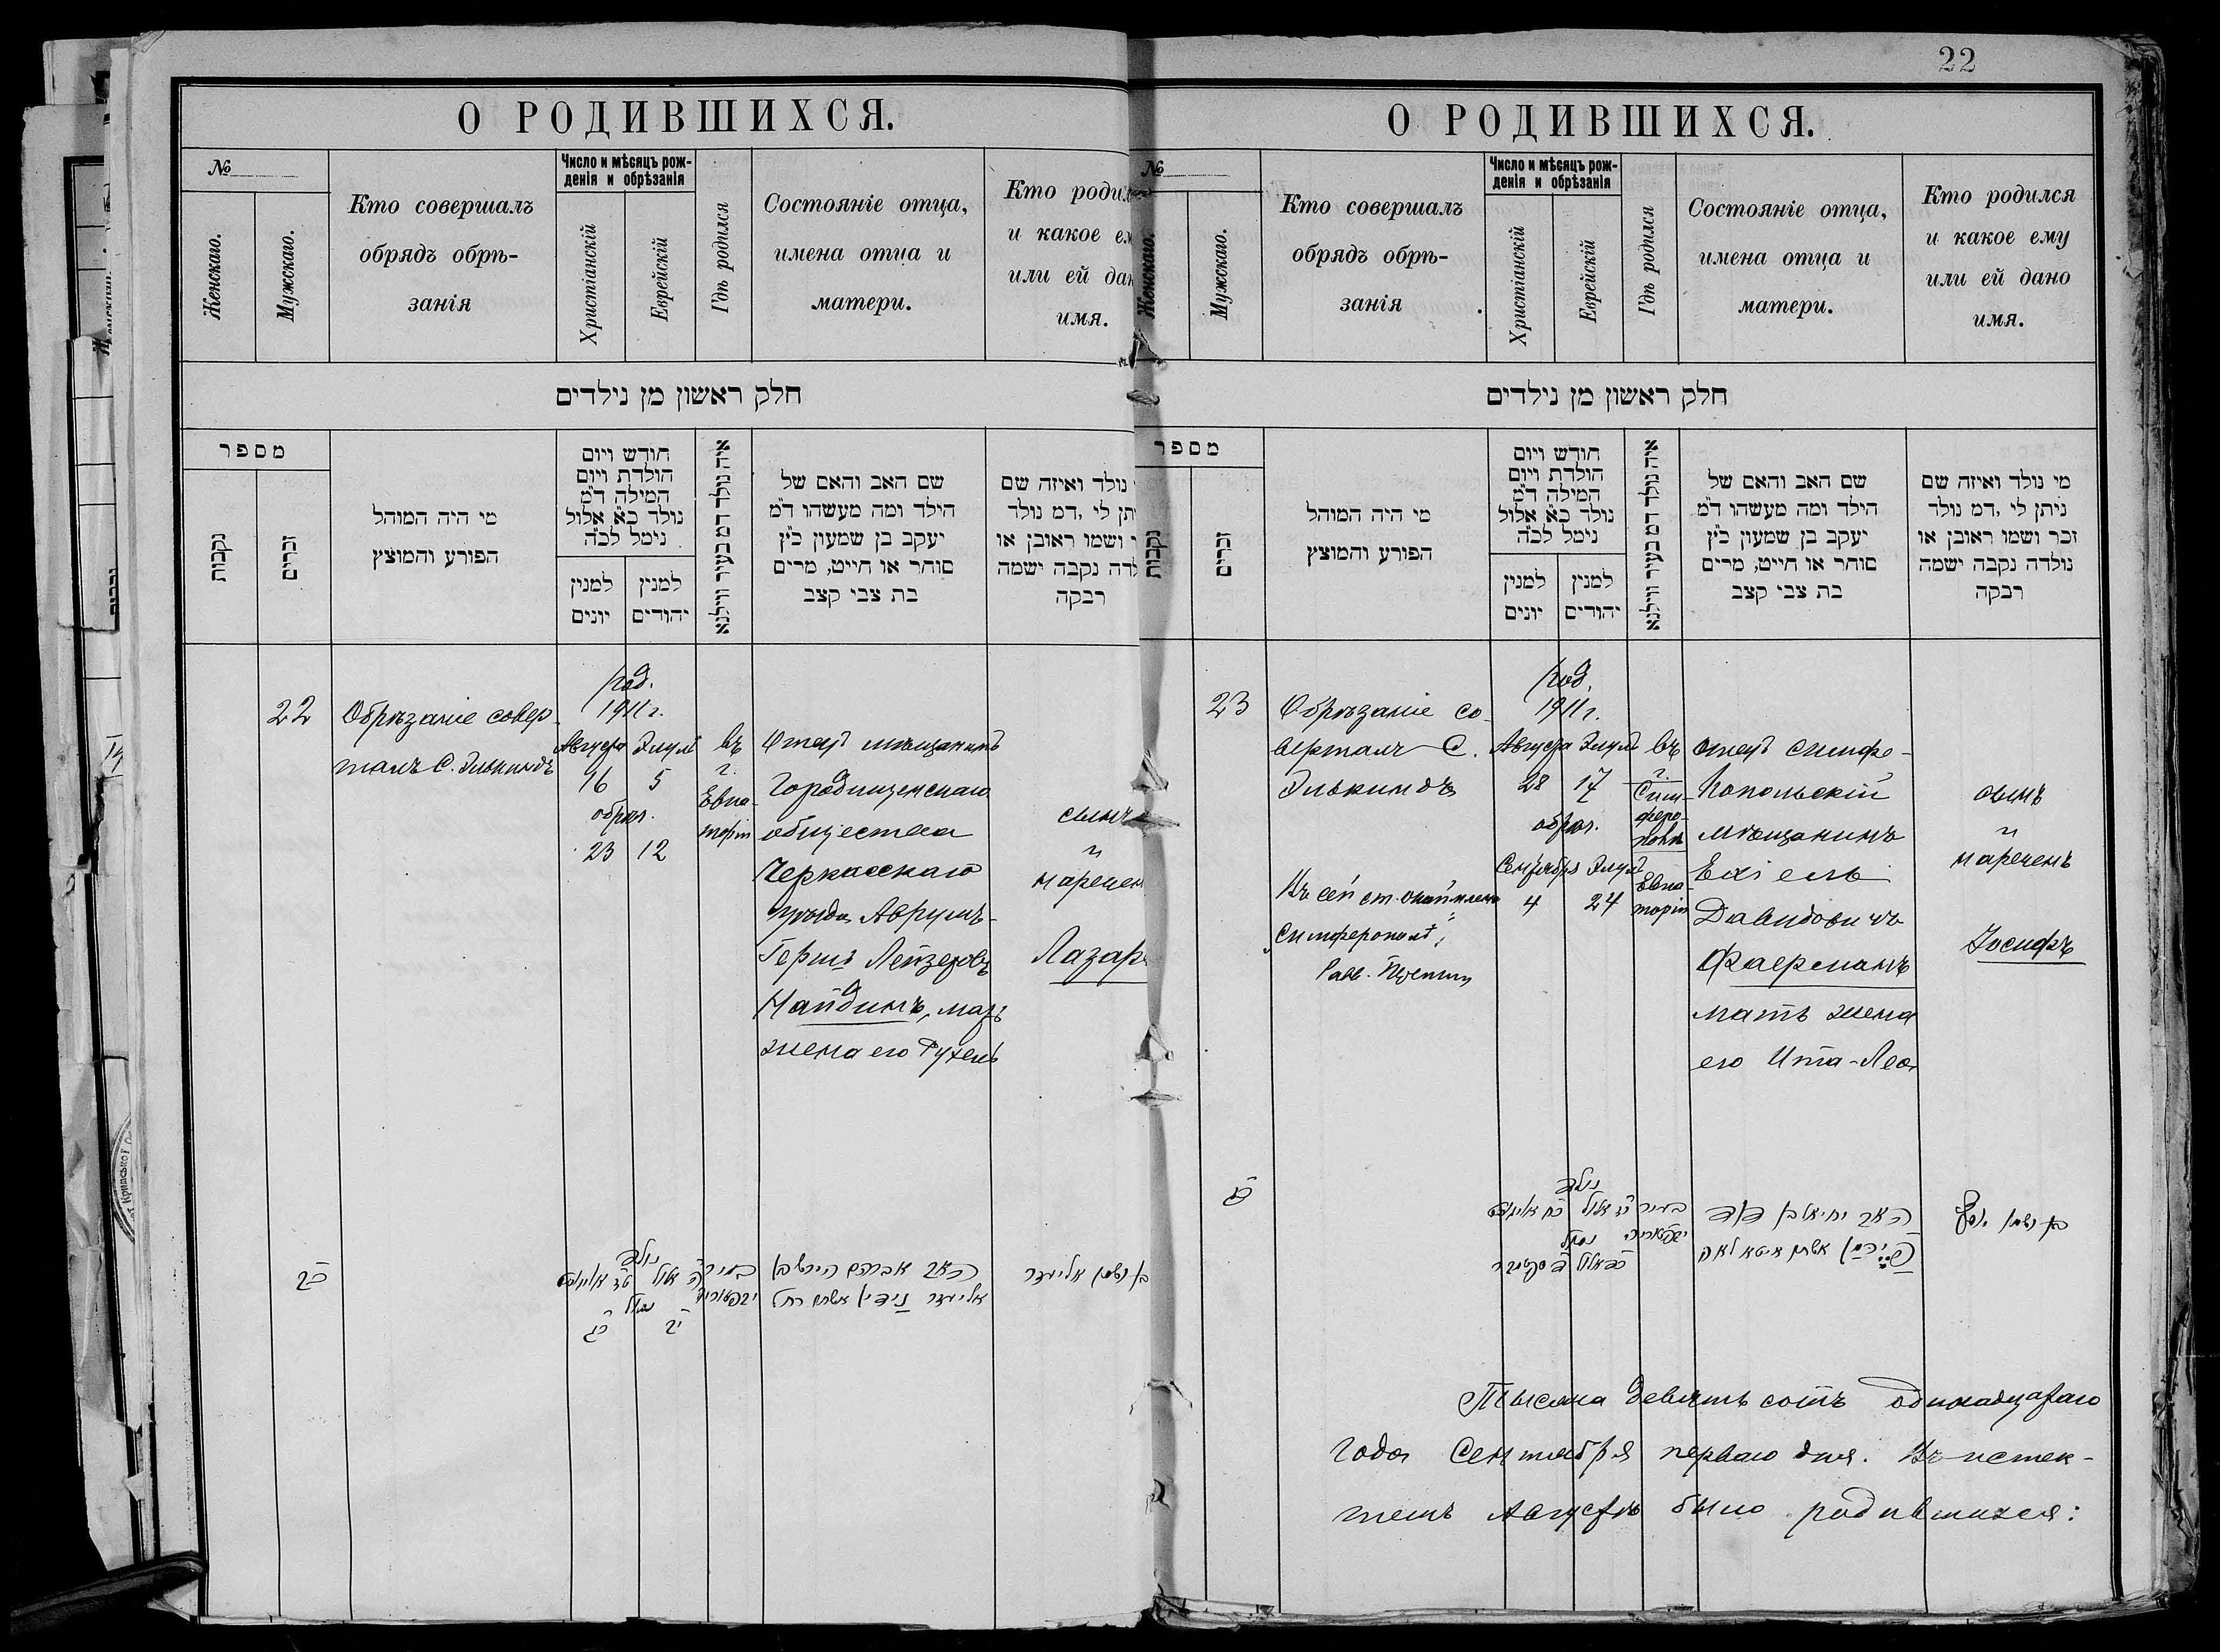 22
О РОДИВШИХСЯ.
№
Женскаго.
Мужскаго.
Кто совершалъ
обрядъ обрѣ-
занія
Число и мѣсяцъ рож-
денія и обрѣзанія
Христіанскій
Еврейскій
Гдѣ родился
Состояніе отца,
имена отца и
матери.
Кто родил
и какое ем
или ей дан
имя.
חלק ראשון מן נילדים
מספר
נקבות
זכרים
מי היה המוהל
הפורע והמוצץ
חודש ויום
הולדת ויום
המילה ד״מ
נולד כ״א אלול
נימל לכ״ה
למנין
יונים
למנין
יהודים
איה נולד דמ בעיר ווילנא
שם האב והאם של
הילד ומה מעשהו ד״מ
יעקב בן שמעון כ״ץ
סוחר או חייט, מרים
בת צבי קצב
נולד ואיזה שם
תן לי ,דמ נולד
ושמו ראובן או
לדה נקבה ישמה
רבקה
22
Обрѣзаніе совер-
шалъ С. Элькиндъ
род.
1911 г.
Августа Элулъ
16 5
обрѣз.
23 12
въ
г.
Евпа-
торіи
Отецъ мѣщанинъ
Городищенскаго
общества
Черкасскаго
уѣзда Аврумъ-
Гершъ Лейзеровъ
Найдинъ, мать
жена его Рухель
сынъ
и
наречен
Лазарь
כב
נולד
ה אלול
נימול
יב
כג
בעיר
האב אברהם הירש בן
אליעזר ניידין אשתו רחל
בן ושמו אליעזר
О РОДИВШИХСЯ.
№
Женскаго.
Мужскаго.
Кто совершалъ
обрядъ обрѣ-
занія
Число и мѣсяцъ рож-
денія и обрѣзанія
Христіанскій
Еврейскій
Гдѣ родился
Состояніе отца,
имена отца и
матери.
Кто родился
и какое ему
или ей дано
имя.
חלק ראשון מן נילדים
מספר
נקבות
זכרים
מי היה המוהל
הפורע והמוצץ
חודש ויום
הולדת ויום
המילה ד״מ
נולד כ״א אלול
נימל לכ״ה
למנין
יונים
למנין
יהודים
איה נולד דמ בעיר ווילנא
שם האב והאם של
הילד ומה מעשהו ד״מ
יעקב בן שמעון כ״ץ
סוחר או חייט, מרים
בת צבי קצב
מי נולד ואיזה שם
ניתן לי ,דמ נולד
זכר ושמו ראובן או
נולדה נקבה ישמה
רבקה
23
Обрѣзаніе со-
вершалъ С.
Элькиндъ
Въ сей ст.
„Симферополѣ“
Равв.
род.
1911 г.
Августа Элулъ
28 17
обрѣз.
Сентября Элулъ
4 24
въ
г.
Сим-
феро-
полѣ
Евпа-
торіи
отецъ симфе-
ропольскій
мѣщанинъ
Ехіель
Давидовичъ
Фаерманъ
мать жена
его Ита-Лея
сынъ
и
нареченъ
Іосифъ
כג
נולד
אלול
נימול
בעיר
האב יחיאל בן דוד
אשתו איטא לאה
בן ושמו יוסף
Тысяча девятьсотъ одинадцатаго
года Сентября перваго дня. Въ истек-
шемъ Августѣ было родившихся: